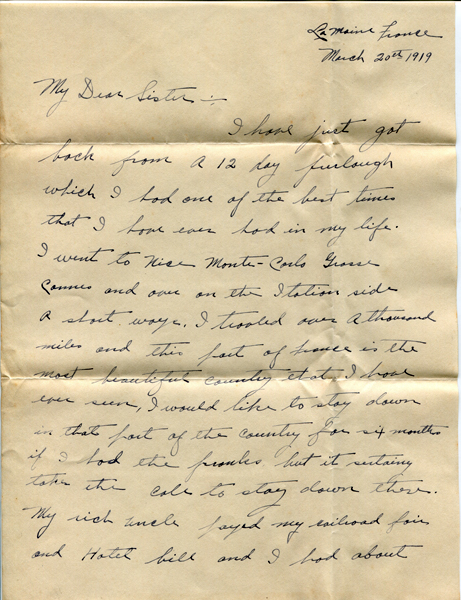 La Maine France
March 20th 1919
My Dear Sister :-
I have just got
back from a 12 day furlough
which I had one of the best times
that I have ever had in my life.
I went to Nice Monte-Carlo Grasse
Cannes and over on the Italian side
a short ways. I traveled over a thousand
miles and this part of france is the
most beautiful country that I have
ever seen, I would like to stay down
in that part of the country for six months
if I had the franks but it sertainy
take the cale to stay down there.
My rich uncle payed my railroad fair
and Hotel bill and I had about